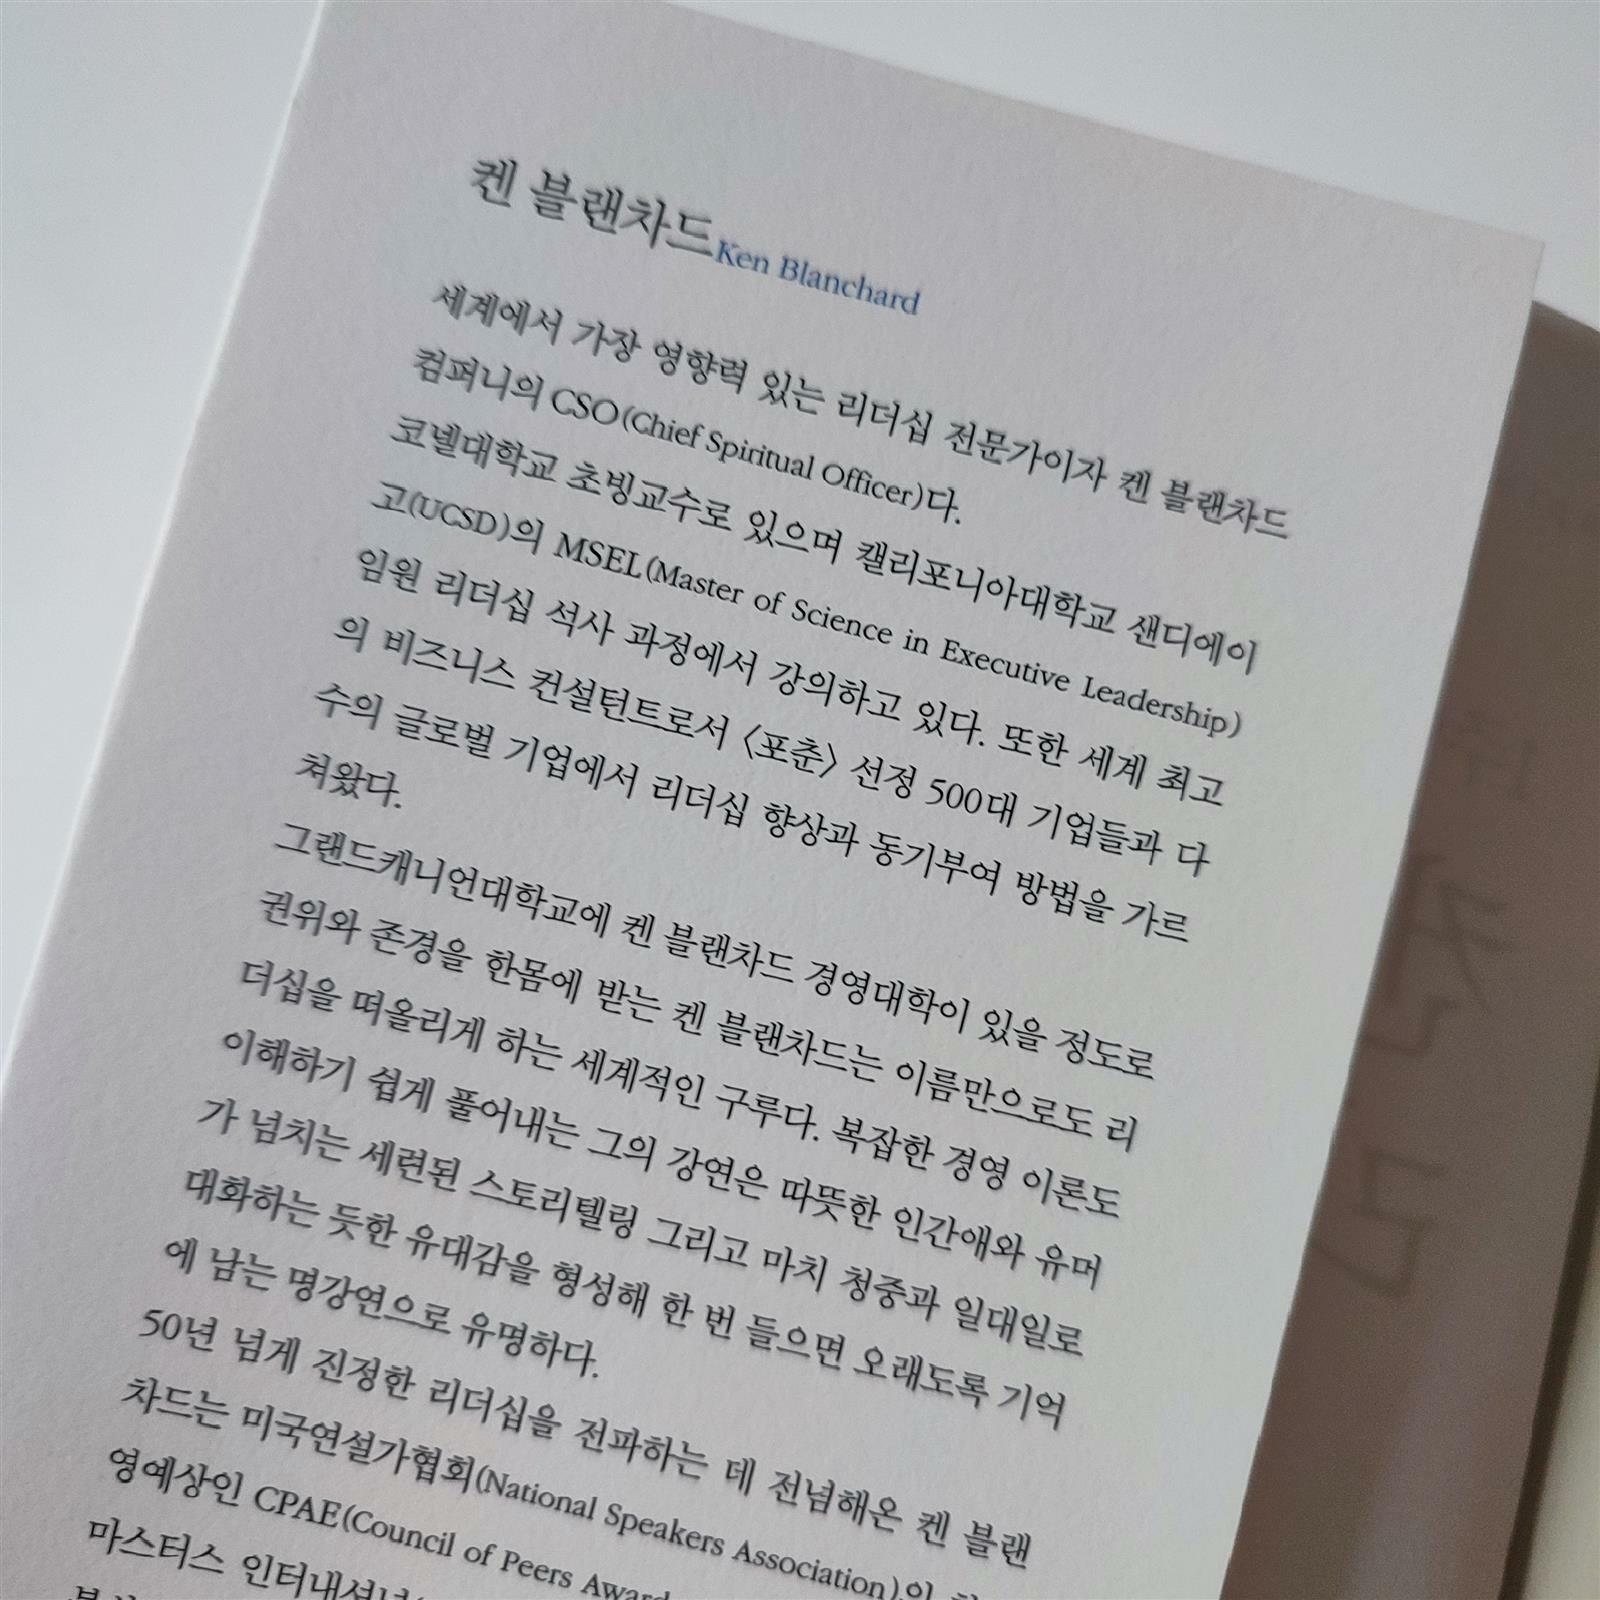 켄 블랜차드Ken Blanchard
세계에서 가장 영향력 있는 리더십 전문가이자 켄 블랜차드
컴퍼니의 CSO(Chief Spiritual Officer)다.
코넬대학교 초빙교수로 있으며 캘리포니아대학교 샌디에이
고(UCSD)의 MSEL(Master of Science in Executive Leadership)
임원 리더십 석사 과정에서 강의하고 있다. 또한 세계 최고
의 비즈니스 컨설턴트로서 〈포춘〉 선정 500대 기업들과 다
수의 글로벌 기업에서 리더십 향상과 동기부여 방법을 가르
쳐왔다.
그랜드캐니언대학교에 켄 블랜차드 경영대학이 있을 정도로
권위와 존경을 한몸에 받는 켄 블랜차드는 이름만으로도 리
더십을 떠올리게 하는 세계적인 구루다. 복잡한 경영 이론도
이해하기 쉽게 풀어내는 그의 강연은 따뜻한 인간애와 유머
가 넘치는 세련된 스토리텔링 그리고 마치 청중과 일대일로
대화하는 듯한 유대감을 형성해 한 번 들으면 오래도록 기억
에 남는 명강연으로 유명하다.
50년 넘게 진정한 리더십을 전파하는 데 전념해온 켄 블랜
차드는 미국연설가협회(National Speakers Association)의
영예상인 CPAE(Council of Peers Award
마스터스 인터내셔널